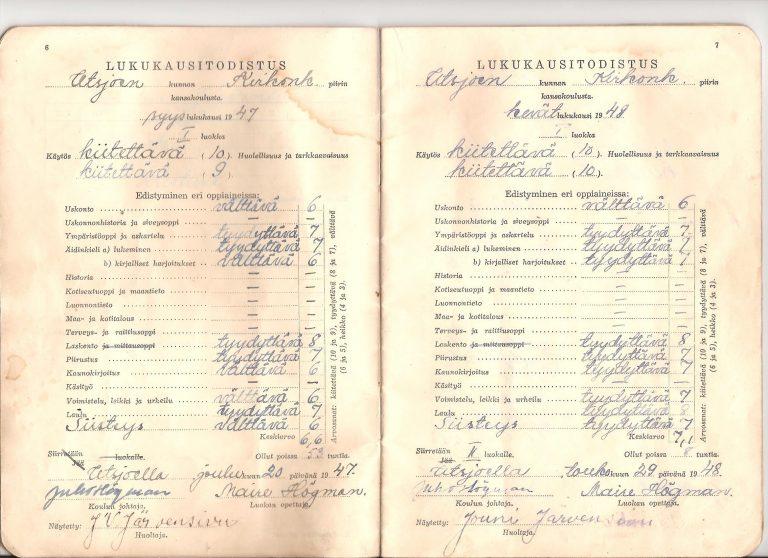 6
LUKUKAUSITODISTUS
Utsjoen kunnan Kirkonk. piirin
kansakoulusta.
syys lukukausi 1947
I luokka
Käytös kiitettävä (10). Huolellisuus ja tarkkaavaisuus
kiitettävä (9).
Edistyminen eri oppiaineissa:
Uskonto välttävä 6
Uskonnonhistoria ja siveysoppi — —
Ympäristöoppi ja askartelu tyydyttävä 7
Äidinkieli a) lukeminen tyydyttävä 7
b) kirjalliset harjoitukset välttävä 6
Historia — —
Kotiseutuoppi ja maantieto — —
Luonnontieto — —
Maa- ja kotitalous — —
Terveys- ja raittiusoppi — —
Laskento ja mittausoppi tyydyttävä 8
Piirustus tyydyttävä 7
Kaunokirjoitus välttävä 6
Käsityö — —
Voimistelu, leikki ja urheilu välttävä 6
Laulu tyydyttävä 7
Siisteys välttävä 6
Keskiarvo 6,6
Arvosanat: kiitettävä (10 ja 9), tyydyttävä (8 ja 7), välttävä
(6 ja 5), heikko (4 ja 3).
Siirretään luokalle. Ollut poissa 53 tuntia.
Jää
Utsjoella joulukuun 20 päivänä 1947.
Juho Högman Maire Högman.
Koulun johtaja. Luokan opettaja.
Näytetty: J V Järvensivu
Huoltaja.
7
LUKUKAUSITODISTUS
Utsjoen kunnan Kirkonk. piirin
kansakoulusta.
kevät lukukausi 1948
I luokka
Käytös kiitettävä (10). Huolellisuus ja tarkkaavaisuus
kiitettävä (10).
Edistyminen eri oppiaineissa:
Uskonto välttävä 6
Uskonnonhistoria ja siveysoppi — —
Ympäristöoppi ja askartelu tyydyttävä 7
Äidinkieli a) lukeminen tyydyttävä 7
b) kirjalliset harjoitukset tyydyttävä 7
Historia — —
Kotiseutuoppi ja maantieto — —
Luonnontieto — —
Maa- ja kotitalous — —
Terveys- ja raittiusoppi — —
Laskento ja mittausoppi tyydyttävä 8
Piirustus tyydyttävä 7
Kaunokirjoitus tyydyttävä 7
Käsityö — —
Voimistelu, leikki ja urheilu tyydyttävä 7
Laulu tyydyttävä 8
Siisteys tyydyttävä 7
Keskiarvo 7,1
Arvosanat: kiitettävä (10 ja 9), tyydyttävä (8 ja 7), välttävä
(6 ja 5), heikko (4 ja 3).
Siirretään II luokalle. Ollut poissa tuntia.
Jää
Utsjoella toukokuun 29 päivänä 1948.
Juho Högman Maire Högman.
Koulun johtaja. Luokan opettaja.
Näytetty: Jouni Järvensivu
Huoltaja.